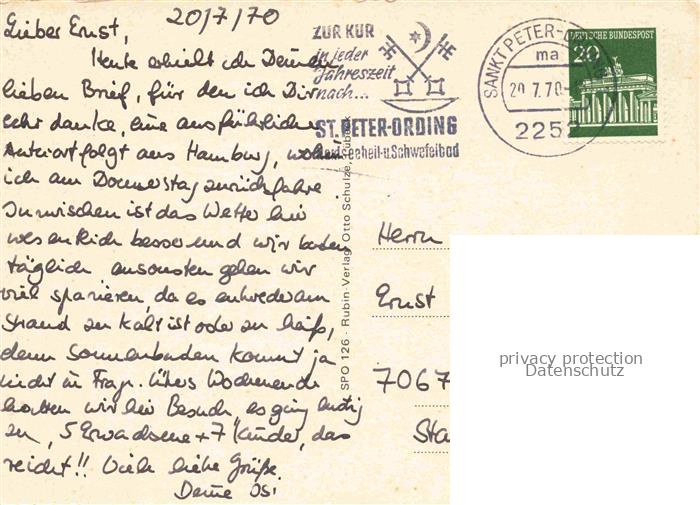 20/7/70
Lieber Ernst,
Heute erhielt ich Deinen
lieben Brief, für den ich Dir
sehr danke, eine ausführliche
Antwort folgt aus Hamburg, wohin
ich am Donnerstag zurückfahre.
Inzwischen ist das Wetter hier
wesentlich besser und wir baden
täglich ansonsten gehen wir
viel spazieren, da es entweder am
Strand zu kalt ist oder zu heiß,
denn Sonnenbaden kommt ja
nicht in Frage. Übers Wochenende
hatten wir hier Besuch, es ging lustig
zu, 5 Erwachsene + 7 Kinder, das
reicht!! Viele liebe Grüße
Deine
ZUR KUR
in jeder
Jahreszeit
nach...
ST. PETER-ORDING
Nordseeheil-u.Schwefelbad
SANKT PETER-O
ma
20.7.70
2252
DEUTSCHE BUNDESPOST
20
SPO 126 · Rubin-Verlag, Otto Schulze, Lübeck
Herrn
Ernst
7067
Sta
privacy protection
Datenschutz